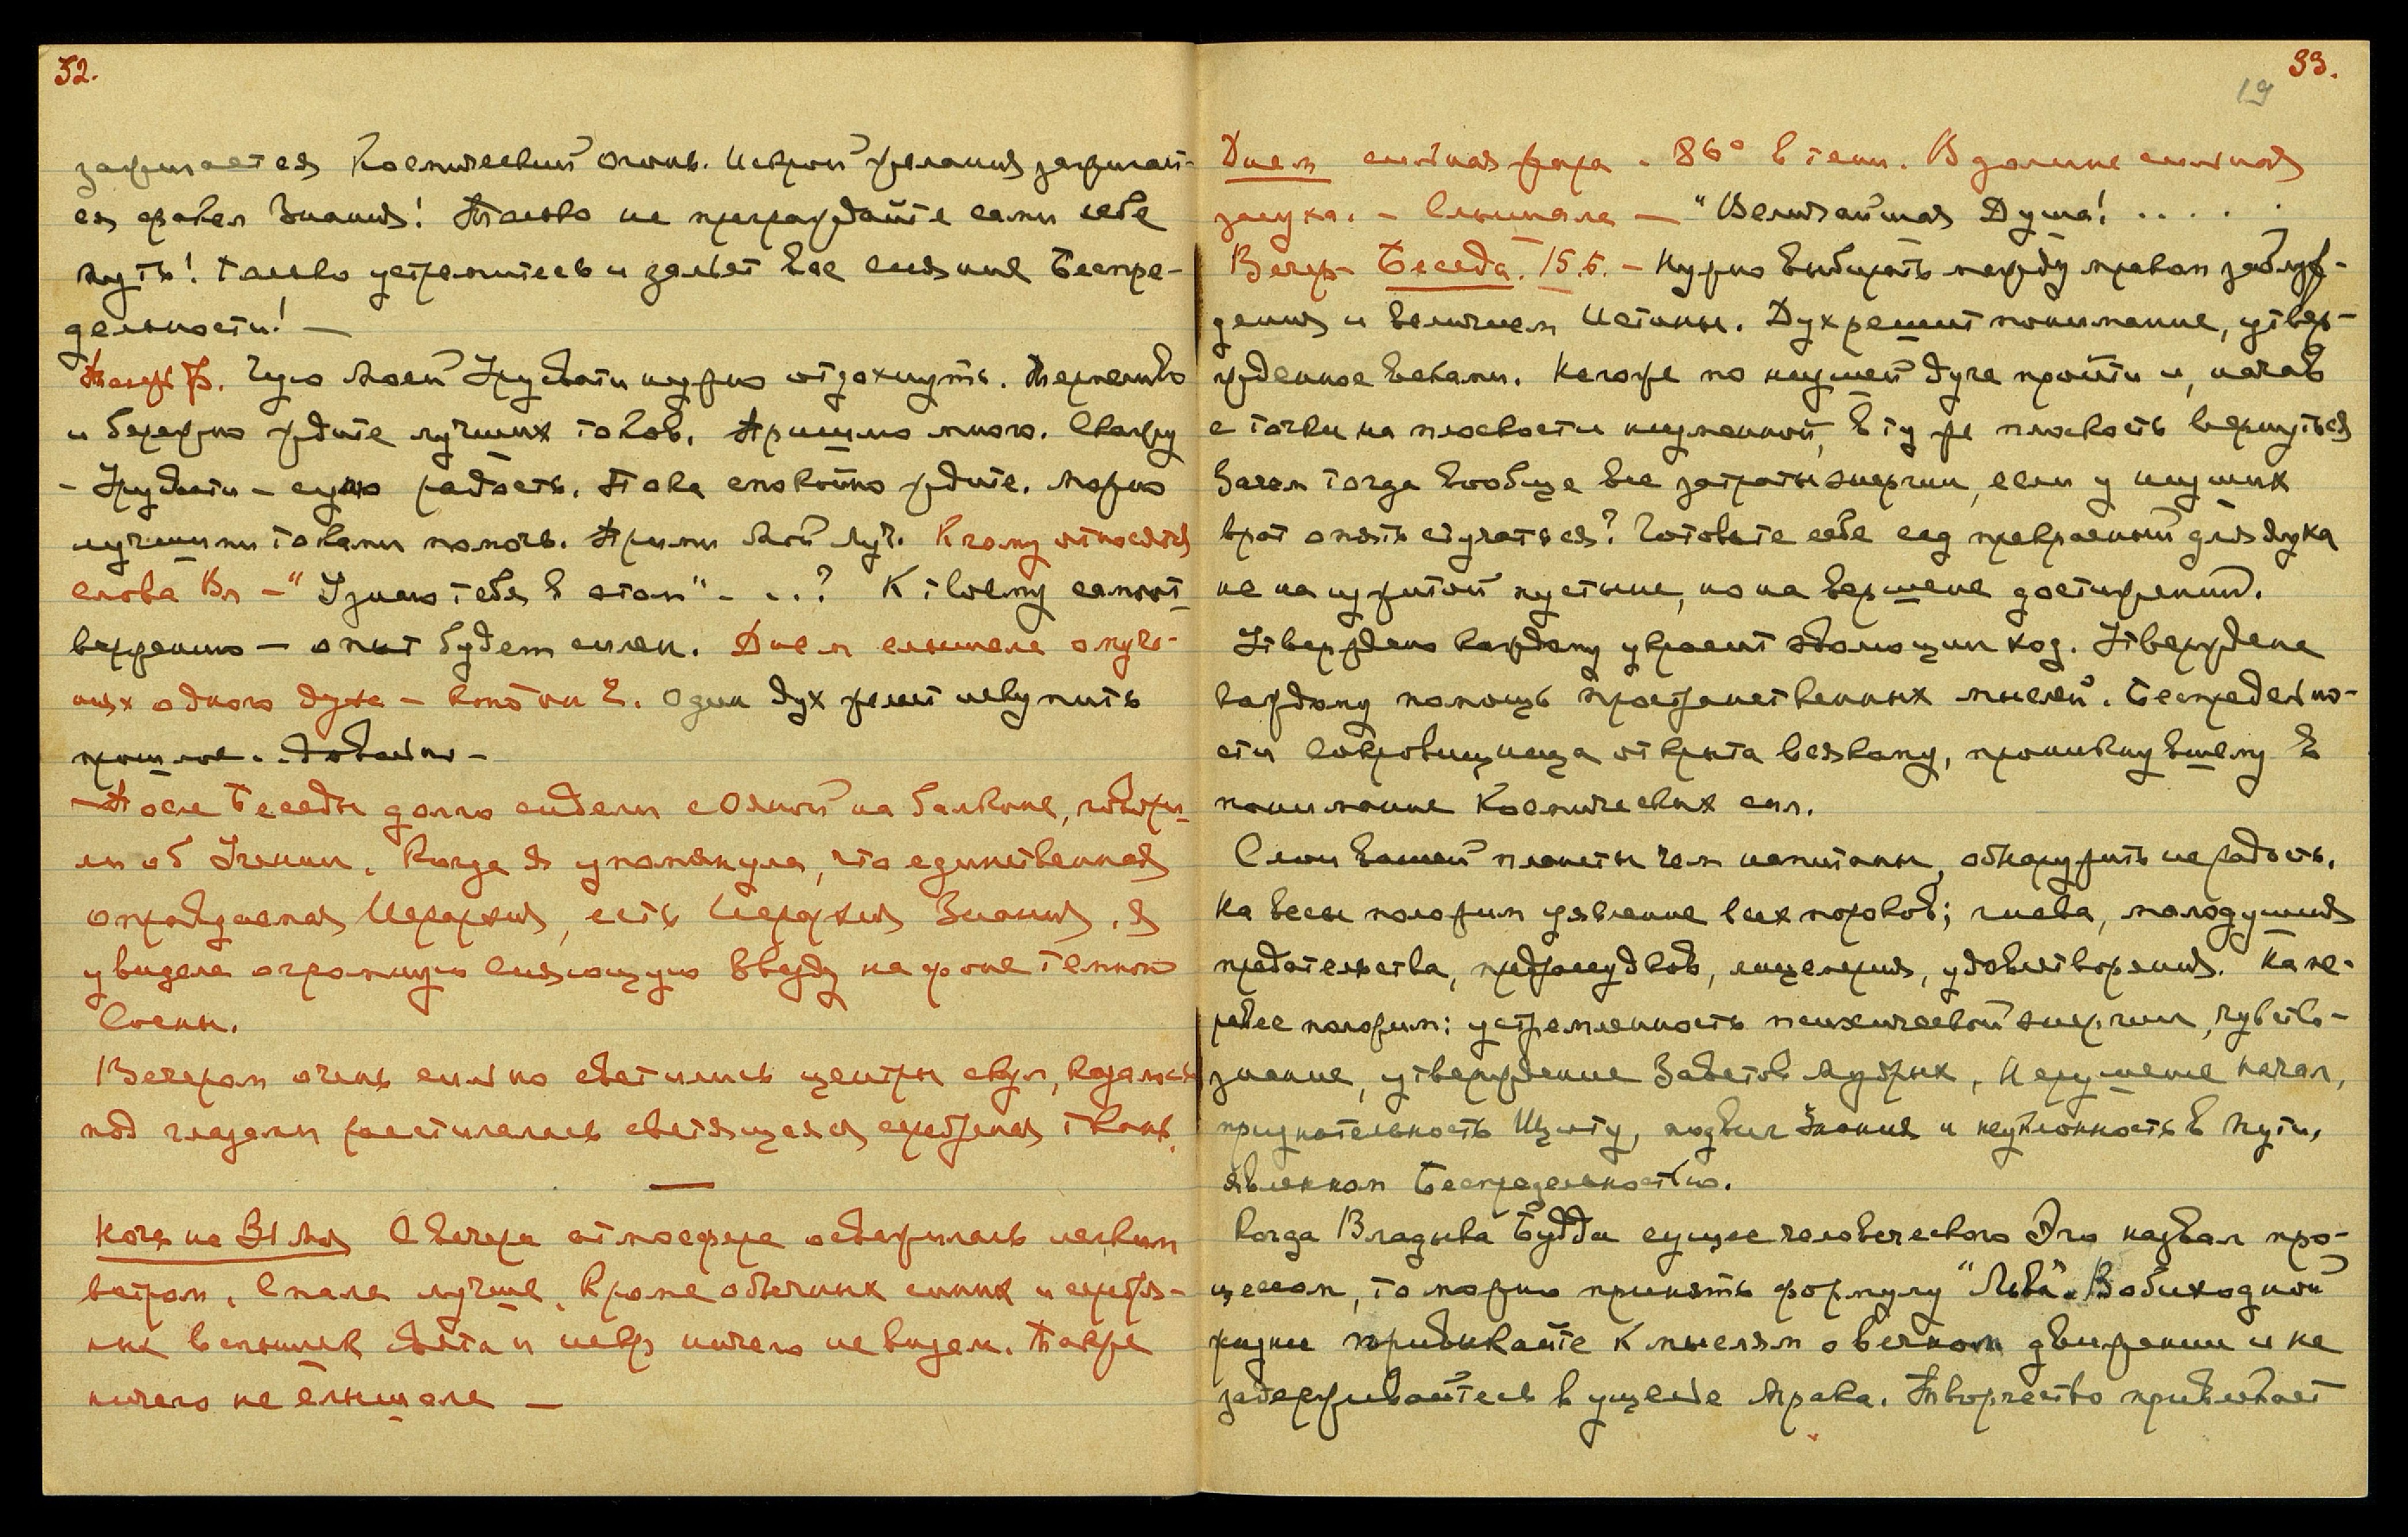 32.
зажигается Космический огонь. Искрой желания зажигает-
ся факел Знания! Только не преграждайте сами себе
путь! Только устремитесь и зальёт вас сияние Беспре-
дельности! —
Чую Моей Урусвати нужно отдохнуть. Терпеливо
и бережно ждите лучших токов. Пришлю много. Скажу
– Урусвати – сужу радость. Пока спокойно ждите. Можно
лучшими токами помочь. Прими Мой Луч. К чему относятся
слова Вл – "Узнаю тебя в этом" – ..? К твоему самоот-
вержению – опыт будет силен. Днем слышала о муче-
ниях одного духа – Один дух желает искупить
прошлое. Довольно –
– После Беседы долго сидели с Ояной на балконе, говори-
ли об Учении. Когда я упомянула, что единственная
оправдаемая Иерархия, есть Иерархия Знания, я
увидела огромную сияющую Звезду на фоне темной
Сосны.
Вечером очень сильно светились центры скул, казалось
под глазами расстилалась светящаяся серебряная ткань.
—
Ночь на 31 Мая С вечера атмосфера освежилась легким
ветром. Спала лучше. Кроме обычных синих и серебря-
ных вспышек света и искр ничего не видела. Также
ничего не слышала —
33.
19
Днем сильная жара. 86° в тени. В долине сильная
засуха. – Слышала — "Величайшая Душа! . . . . .
Вечер – Беседа. 15.5. – Нужно выбирать между мраком заблуж-
дения и величием Истины. Дух решит понимание, утвер-
жденное веками. Негоже по низшей дуге пройти и, начав
с точки на плоскости низменной, в ту же плоскость вернуться
Зачем тогда вообще все затраты энергии, если у низших
врат опять стучаться? Готовьте себе сад прекрасный для духа
не на изжитой пустыне, но на вершине достижений.
Утверждено каждому украсит эволюции ход. Утверждена
каждому помощь пространственных мыслей. Беспредельно-
сти Сокровищница открыта всякому, проникнувшему в
понимание Космических сил.
Слои вашей планеты чем напитаны, обнаружить не радость.
На весы положим явление всех пороков; гнева, малодушия
предательства, предрассудков, лицемерия, удовлетворения. На не-
равес положим: устремленность психической энергии, чувств-
знание, утверждение Заветов Мудрых, Нерушение Начал,
признательность Щиту, подвиг Знания и неуклонность в Пути,
явленном Беспредельностью.
Когда Владыка Будда сущее человеческого Эго назвал про-
цессом, то можно принять формулу "Льва". В обиходной
жизни привыкайте к мыслям о вечном движении и не
задерживайтесь в ущелье Мрака. Творчество привлекает